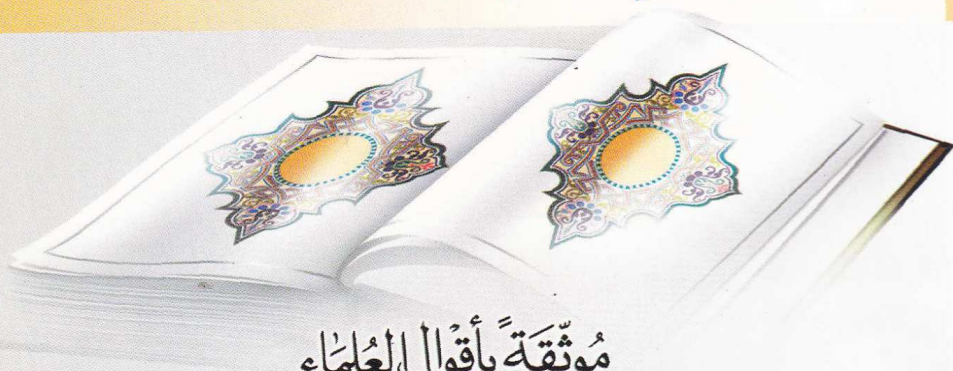 مُوثَّقَةً بأقْوالِ العُلمَاءِ